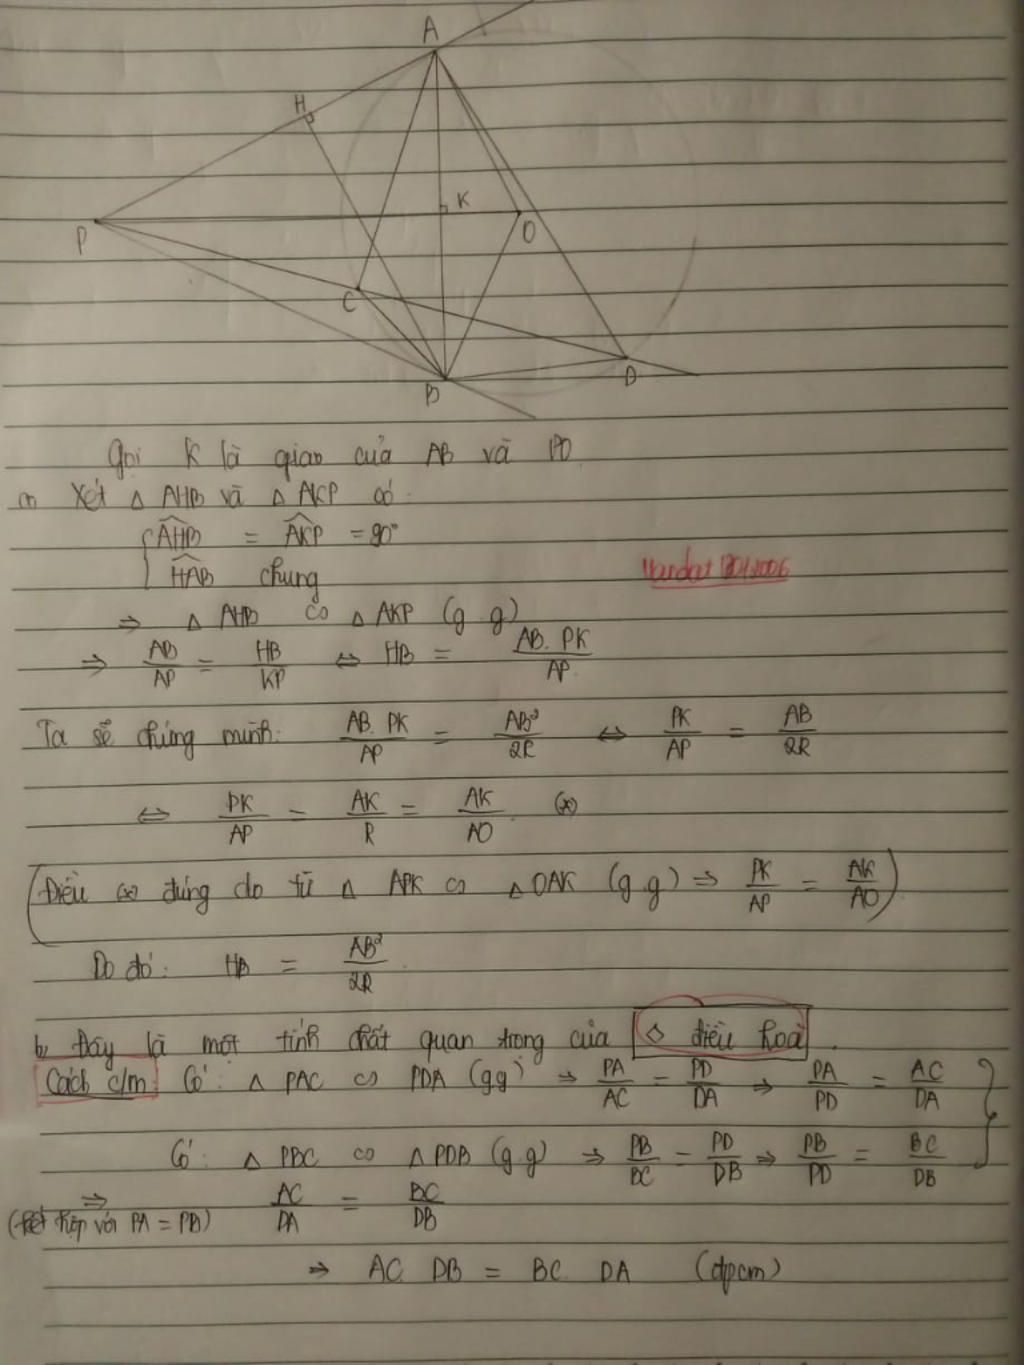 A
H
K
P
O
C
B
D
Gọi K là giao của AB và PO
a, Xét △ AHB và △ AKP có:
{ \widehat{AHB} = \widehat{AKP} = 90°
\widehat{HAB} chung
⇒ △ AHB ∽ △ AKP (g.g)
⇒ AB/AP = HB/KP ⇔ HB = AB.PK/AP
Ta sẽ chứng minh: AB.PK/AP = AB²/2R ⇔ PK/AP = AB/2R
⇔ PK/AP = AK/R = AK/AO (*)
(Điều (*) đúng do từ △ APK ∽ △ OAK (g.g) ⇒ PK/AP = AK/AO)
Do đó: HB = AB²/2R
b, Đây là một tính chất quan trọng của ◇ điều hoà.
Cách c/m: Có: △ PAC ∽ PDA (gg) ⇒ PA/AC = PD/DA ⇒ PA/PD = AC/DA
Có: △ PBC ∽ △ PDB (g.g) ⇒ PB/BC = PD/DB ⇒ PB/PD = BC/DB
⇒ AC/DA = BC/DB
(kết hợp với PA = PB)
⇒ AC DB = BC DA (đpcm)